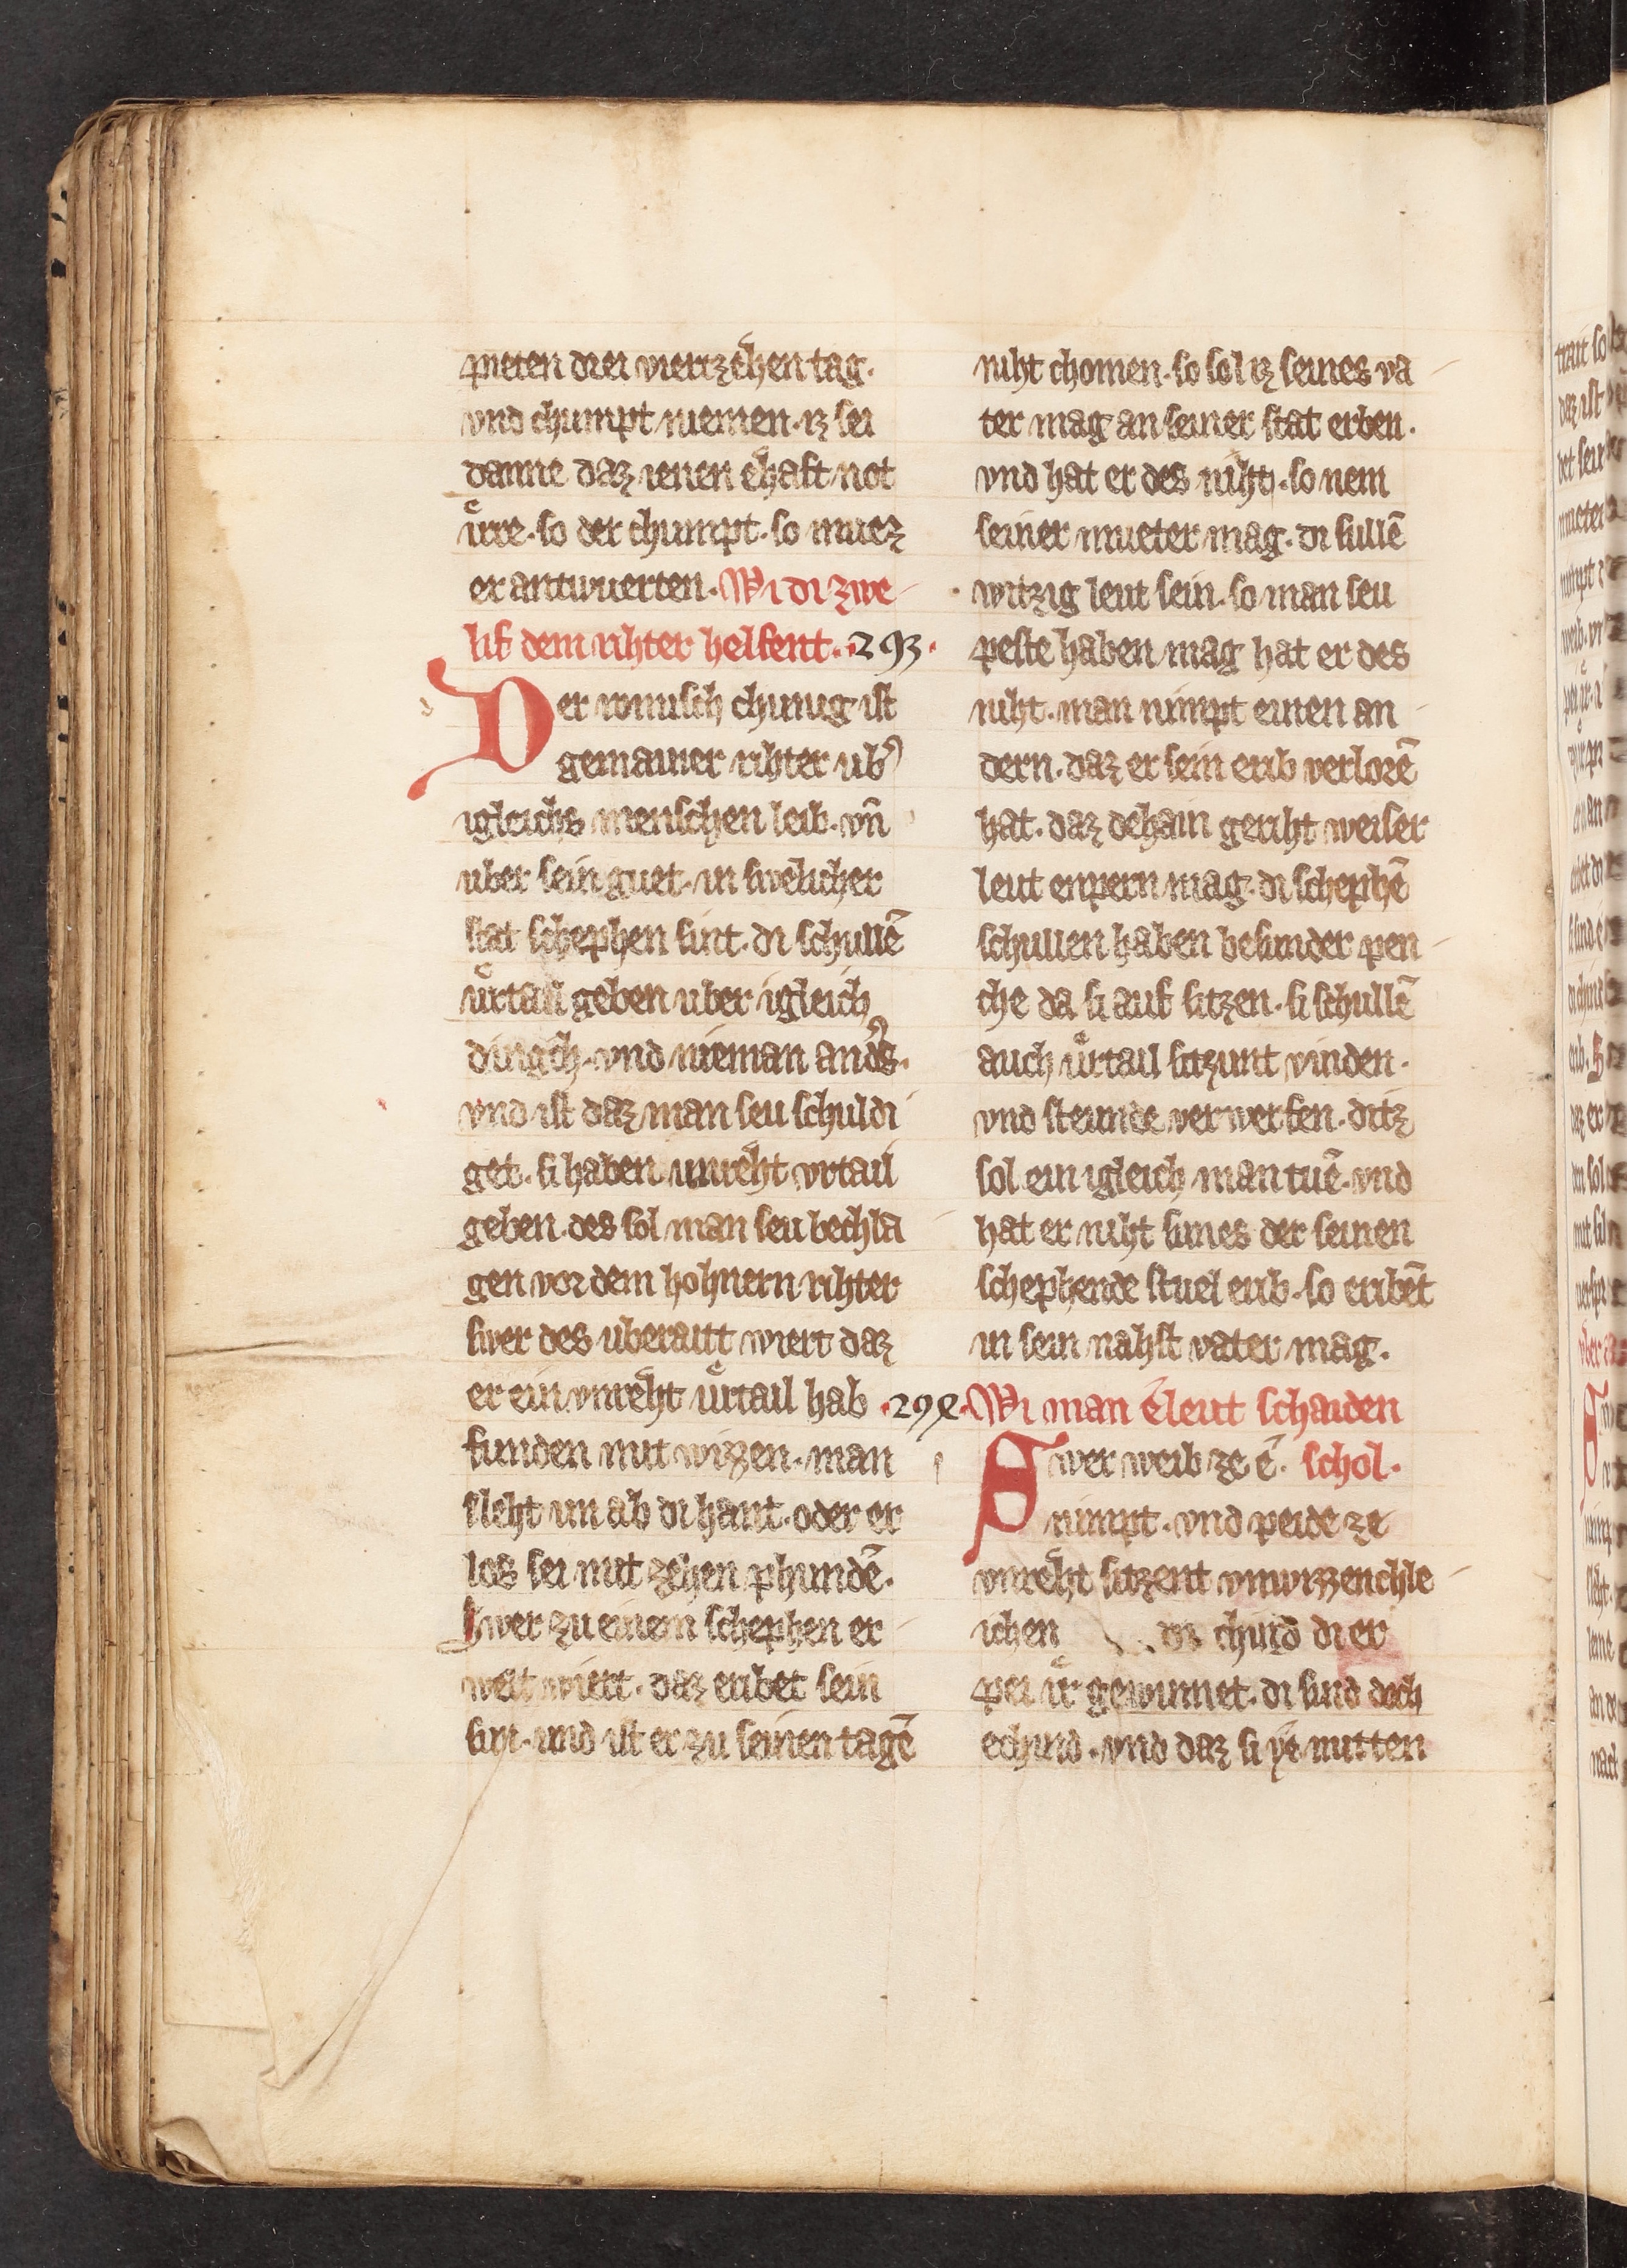 pieten drei viertzehen tag.
vnd chumpt niemen. iz sei
danne daz ienen ehaft not
irre. so der chumpt. so muez
er antwuerten. Wi di zwe
lif dem rihter helfent. 293.
Der romisch chunig ist
gemainer rihter ub͛
igleichs menschen leib. vn̄
uber sein guet. in swelicher
stat schephen sint. di schullē
uͤrtail geben uber igleich
dingch. vnd nieman and͛s.
vnd ist daz man seu schuldi
get. si haben unreht vrtail
geben. des sol man seu bechla
gen vor dem hohnern rihter
swer des uberaitt wiert daz
er ein vnreht uͤrtail hab
funden mit wizzen. man
sleht im ab di hant. oder er
los sei mit zehen phundē.
Swer zu einem schephen er
welt wiert. daz eribet sein
sun. und ist er zu seinen tagē
niht chomen. so sol iz seines va
ter mag an seiner stat erben.
vnd hat er des niht. so nem
seiner mueter mag. di sullē
witzig leut sein. so man seu
peste haben mag hat er des
niht. man nimpt einen an
dern. daz er sein erib verlorē
hat. daz dehain geriht weiser
leut enpern mag. di schephē
schullen haben besunder pen
che da si auf sitzen. si schullē
auch uͤrtail sitzunt vinden.
vnd steunde verwerfen. ditz
sol ein igleich man tuē. vnd
hat er niht sunes der seinen
schephende stuel erib. so eribēt
in sein nahst vater mag.
.294. Wi man ēleut schaiden
Swer weib ze ē. schol.
nimpt. vnd peide ze
vnreht sitzent vnwizzenchle
ichen diz chind di er
pei ir gewinnet. di sind doch
echind. vnd daz si ye mitten